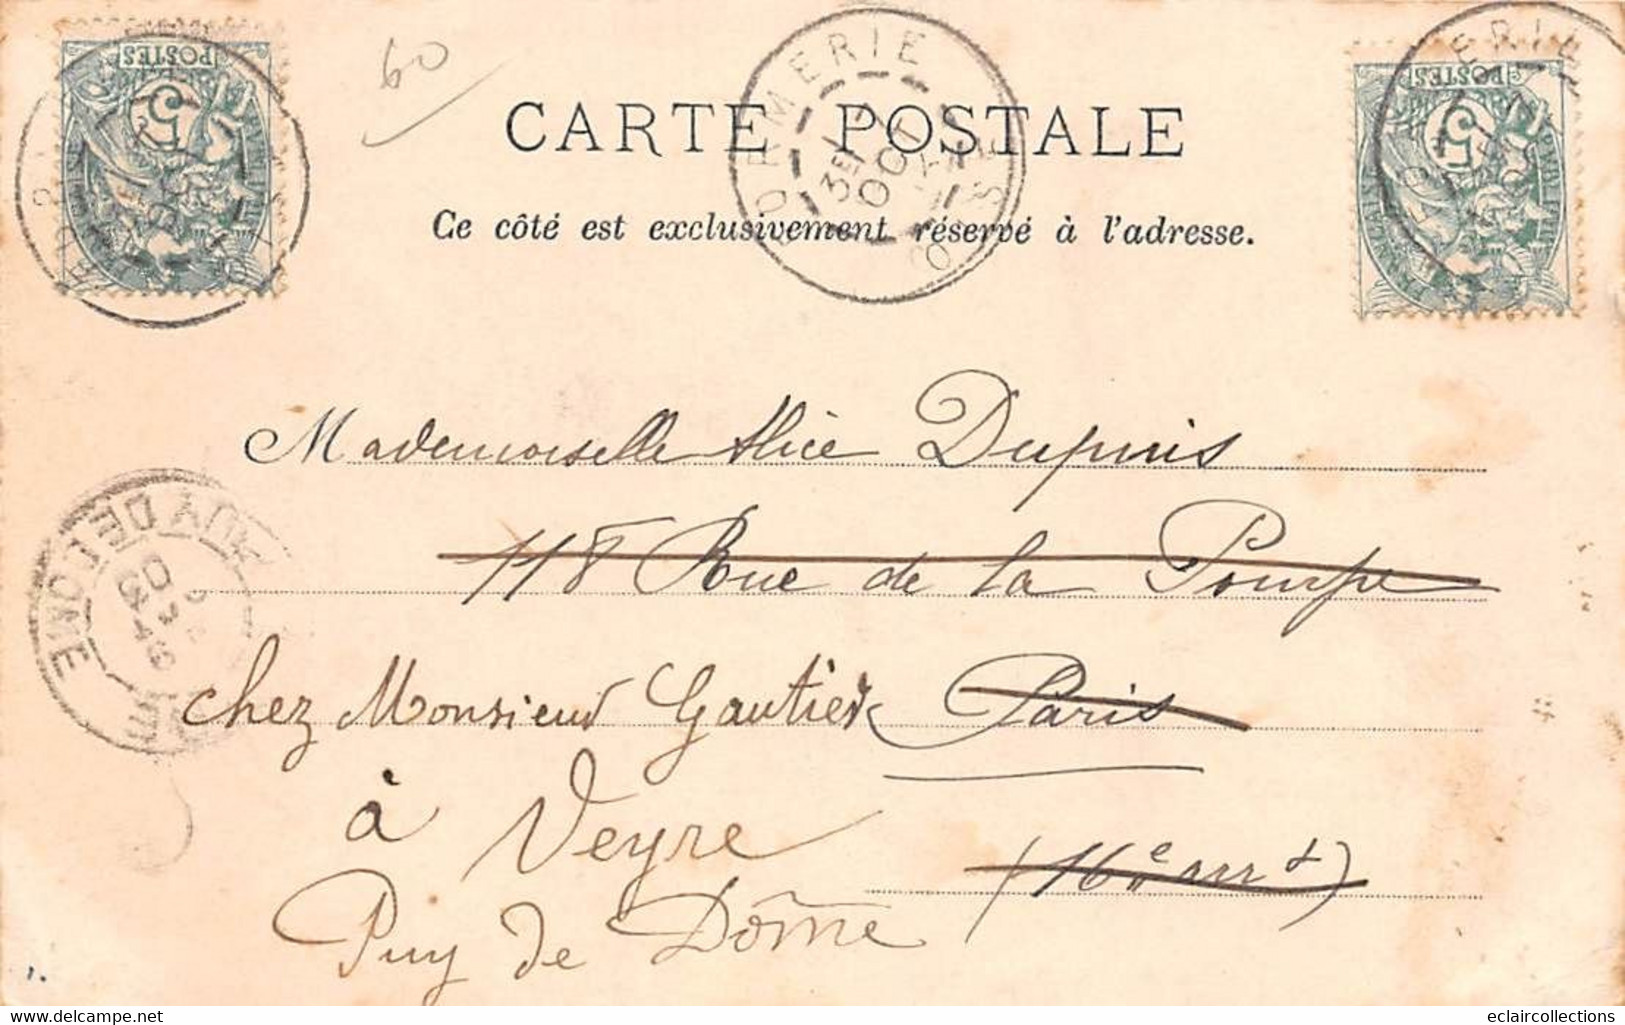 60
CARTE POSTALE
Ce côté est exclusivement réservé à l'adresse.
POSTES
5
POSTES
5
FORMERIE
OISE
Mademoiselle Alice Dupuis
118 Rue de la Pompe
chez Monsieur Gautier Paris
à Veyre (16e arrt)
Puy de Dôme
PUY DE DOME
1.
eclaircollections